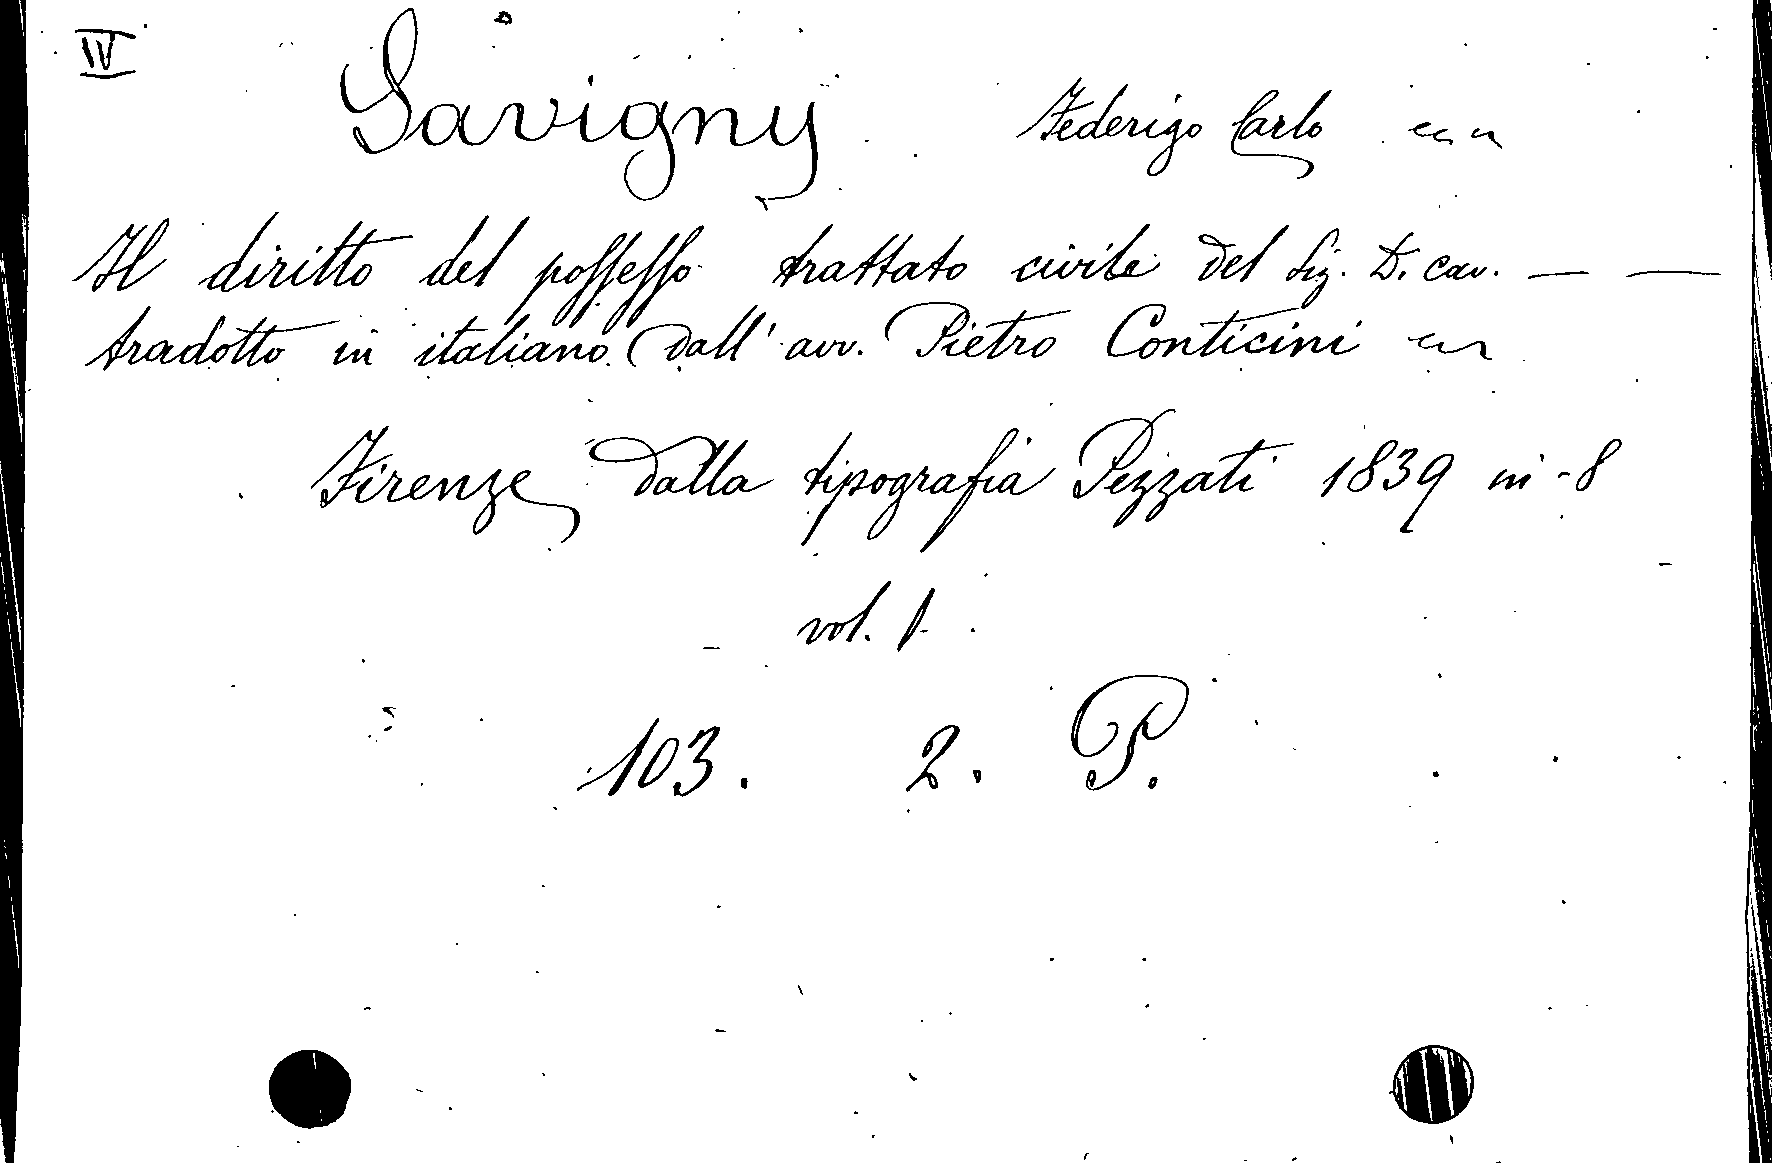 IV
Savigny Federigo Carlo
Il diritto del possesso trattato civile del Sig. D. cav. — —
tradotto in italiano dall' avv. Pietro Conticini
Firenze dalla tipografia Pezzati 1839 in-8
vol. 1
103. 2. P.